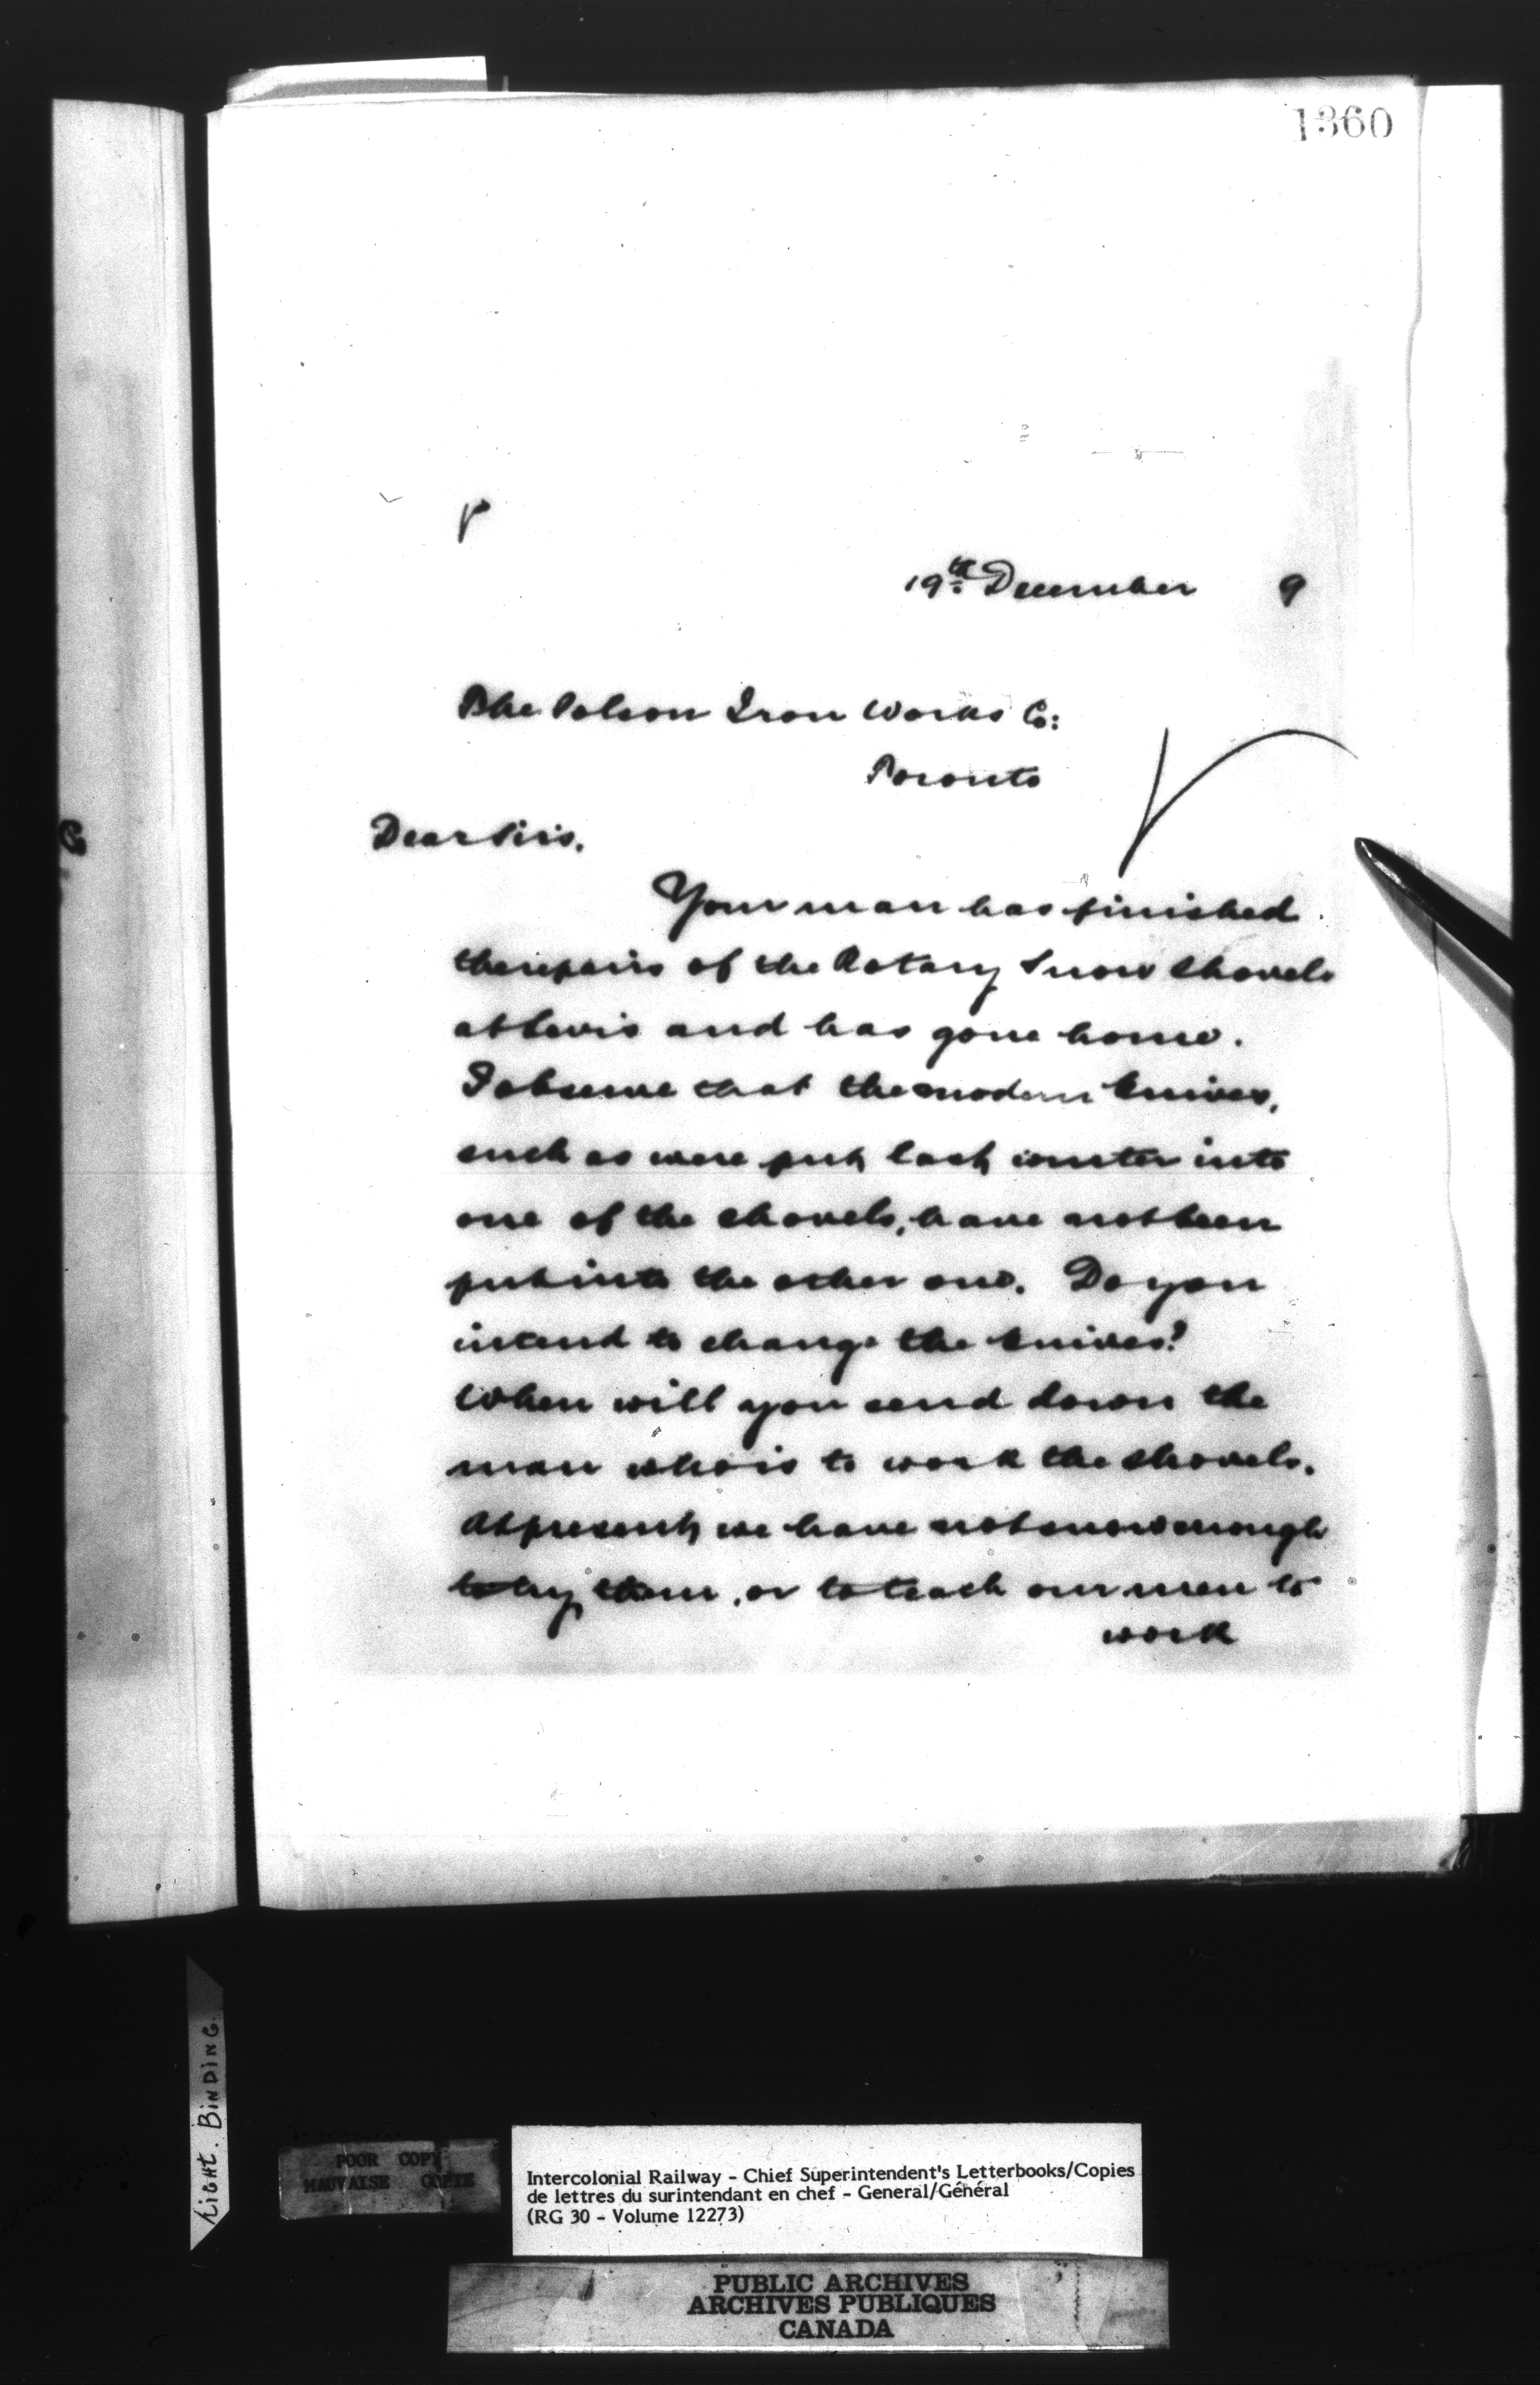 1360
19th December 9
The Polson Iron Works Co:
Toronto
Dear Sirs.
Your man has finished
the repairs of the Rotary Snow Shovels
at Levis and has gone home.
I observe that the modern knives,
such as were put last winter into
one of the shovels, have not been
put into the other one. Do you
intend to change the knives?
When will you send down the
man who is to work the shovels.
At present we have not snow enough
to try them, or to teach our men to
work
TIGHT. BINDING.
POOR COPY
MAUVAISE COPIE
Intercolonial Railway - Chief Superintendent's Letterbooks/Copies
de lettres du surintendant en chef - General/Général
(RG 30 - Volume 12273)
PUBLIC ARCHIVES
ARCHIVES PUBLIQUES
CANADA